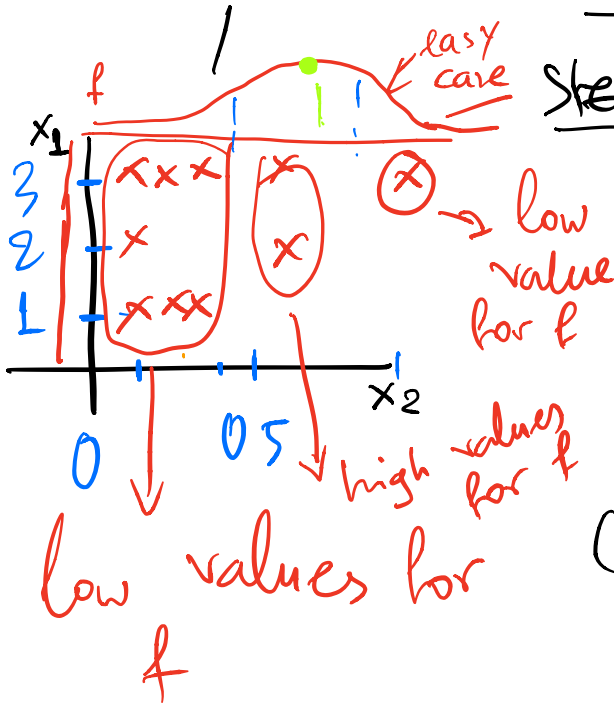 easy
case
f
Ske
x1
3
2
1
low
value
for f
x2
0
0 5
high values
for f
low values for
f